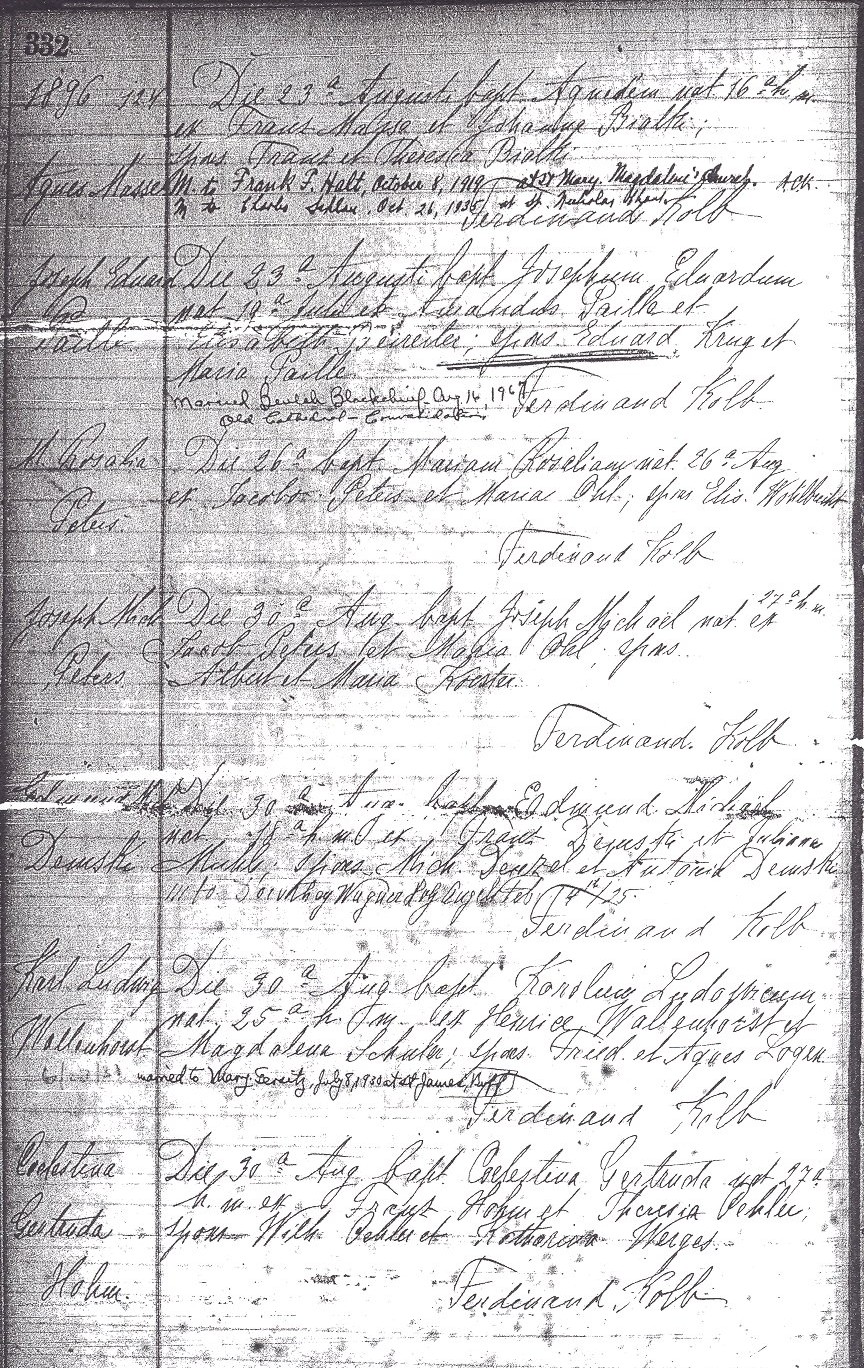 332
1896 124 Die 23ª Augusti bapt. Agnetem nat 16ª h. m.
ex Franz Massa et Johanna Bialki;
spons Franz et Theresia Bialki
Agnes Massa M. to Frank F. Halt, October 8, 1919 at St Mary Magdalene Church. ACK.
M to Charles Oct. 26, 1935 at St. Nicholas
Ferdinand Kolb
Joseph Eduard Die 23ª Augusti bapt. Josephum Eduardum
nat 19ª Julii ex Amandus Paille et
Paille Elisabeth spons Eduard Krug et
Maria Paille
Married Beulah Aug 16, 1967
Old Cathedral - Convalidation
Ferdinand Kolb
M. Rosalia Die 26ª bapt. Mariam Rosaliam nat. 26ª Aug
ex Jacobo Peters et Maria Ohl; spons Elis.
Peters.
Ferdinand Kolb
Joseph Mich Die 30ª Aug bapt Joseph Michael nat 27ª h. m. ex
Jacob Peters et Maria Ohl, spons.
Peters Albert et Maria Koester
Ferdinand. Kolb
30 Aug. Edmund Michael
nat 18ª h. m. ex Franz Demski et Juliana
Demski spons. Mich. Denzel et Antonia Demski
m to Dorothy Wagner Holy Angels Feb 14th/25.
Ferdinand Kolb
Karl Ludwig Die 30ª Aug bapt Karolum Ludovicum
nat. 25ª h. m. ex Henrico Wallenhorst et
Wallenhorst Magdalena Schuler; spons. Fried. et Agnes Logen
married to Mary July 8, 1930 at St James, Buff
Ferdinand Kolb
Coelestina Die 30ª Aug bapt. Coelestina Gertruda nat 27ª
h. m. ex Franz Hohm et Theresia Oehler;
Gertruda spons Wilh Oehler et Katharina Werges.
Hohm.
Ferdinand Kolb